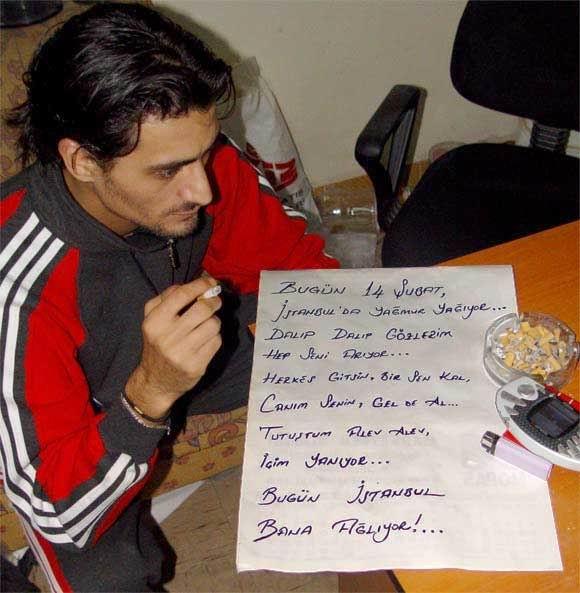 BUGÜN 14 ŞUBAT,
İSTANBUL'DA YAĞMUR YAĞIYOR...
DALIP DALIP GÖZLERİM
HEP SENİ ARIYOR...
HERKES GİTSİN, BİR SEN KAL,
CANIM SENİN, GEL DE AL...
TUTUŞTUM ALEV ALEV,
İÇİM YANIYOR...
BUGÜN İSTANBUL
BANA AĞLIYOR!...